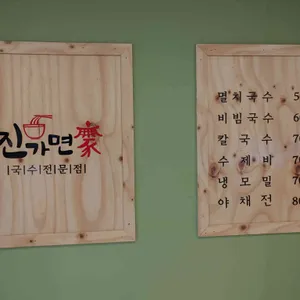 진가면
|국|수|전|문|점|
멸치국수 5
비빔국수 60
칼국수 70
수제비 70
냉모밀 70
야채전 80